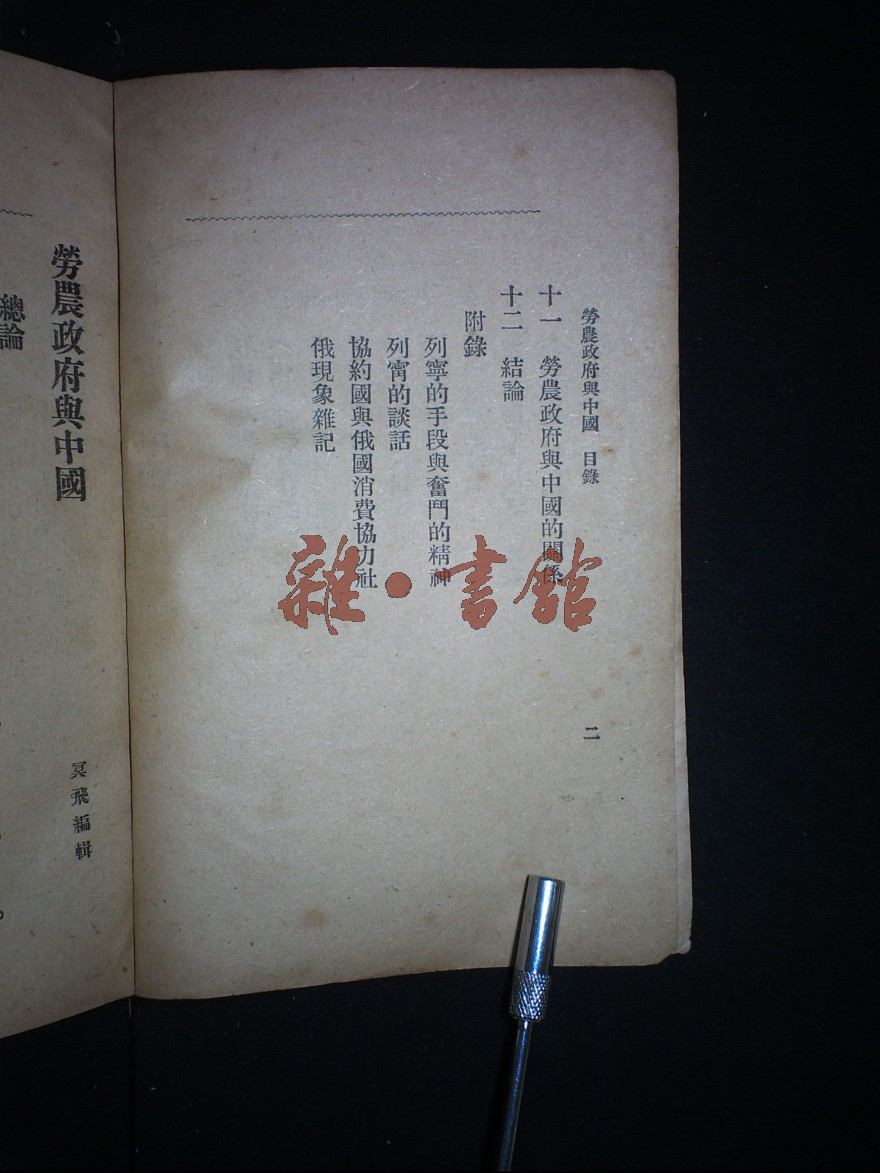 勞農政府與中國 目錄
十一 勞農政府與中國的關係
十二 結論
附錄
列寧的手段與奮鬥的精神
列甯的談話
協約國與俄國消費協力社
俄現象雜記
二
勞農政府與中國
冥飛編輯
總論
雜·書館